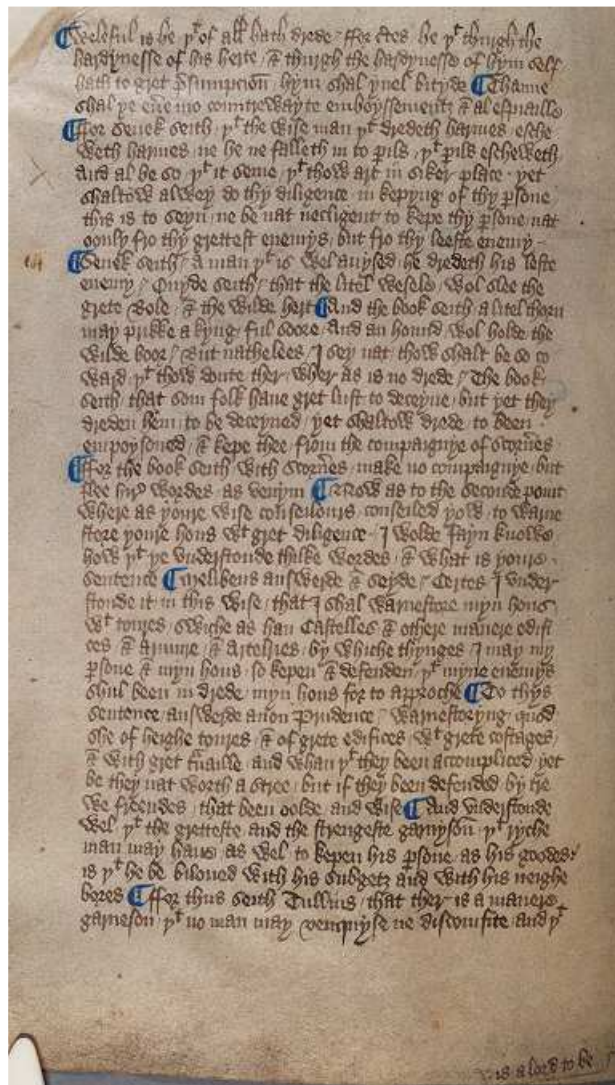 ¶ Weleful is he þt of all hath drede / ffor c̄tes he þt thurgh the
hardynesse of his herte / & thurgh the hardynesse of hym self
hath to gret p̄sumpcion̄ hym shal yuel bityde ¶ Thanne
shal ye eūe mo countrewayte emboyssementz & al espiaille
¶ ffor Senek seith / þt the wise man þt dredeth harmes / esche
weth harmes / ne he ne falleth in to p̲ils / þt p̲ils escheweth
And al be so / þt it seme / þt thow art in siker place / yet
shaltow alwey do thy diligence in kepyng of thy p̲sone /
this is to seyn / ne be nat necligent to kepe thy p̲sone / nat
oonly fro thy grettest enemys / but fro thy leeste enemy /
¶ Senek seith / A man þt is wel auysed / he dredeth his leste
enemy / Ouyde seith / that the litel wesele / wol slee the
grete bole / & the wilde hert ¶ And the book seith a litel thorn
may prikke a kyng ful soore / And an hound wol holde the
wilde boor / But nathelees / I sey nat / thow shalt be so co
ward / þt thow doute ther / wher as is no drede / The book
seith / that som folk haue gret lust to deceyue / but yet they
dreden hem / to be deceyued / yet shaltow drede to been
empoysoned / & kepe thee / from the compaignye of scorn̄es
¶ ffor the book seith / with scorn̄es / make no compaignye / but
flee hir wordes / as venym ¶ Now as to the seconde point
where as youre wise conseilours / conseiled yow / to warne
store youre hous wt gret diligence / I wolde fayn knowe
how þt ye vnderstonde thilke wordes / & what is youre
sentence ¶ Melibeus answerde & seyde / Certes I vnder
stonde it in this wise / that I shal warnestore myn hous
wt toures / swiche as han Castelles & othere manere edifi
ces / & armure / & artelries / by whiche thynges / I may my
p̲sone & myn hous / so kepen & defenden / þt myne enemys
shul been in drede / myn hous for to approche ¶ To thys
sentence / answerde anon Prudence / warnestoryng / quod
she of heighe toures / & of grete edifices / wt grete costages /
& with gret t̄uaille / and whan þt they been accompliced / yet
be they nat worth a stree / but if they been defended / by tre
we freendes / that been oolde / and wise ¶ And vnderstonde
wel / þt the gretteste / and the strengeste garnyson̄ / þt ryche
man may haue / as wel to kepen his p̲sone / as his goodes /
is þt he be biloued / with his subgetz and with his neighe
bores ¶ ffor thus seith Tullius / that ther is a manere
garneson / þt no man may venquyse ne discomfite / and þt
is a lord to be